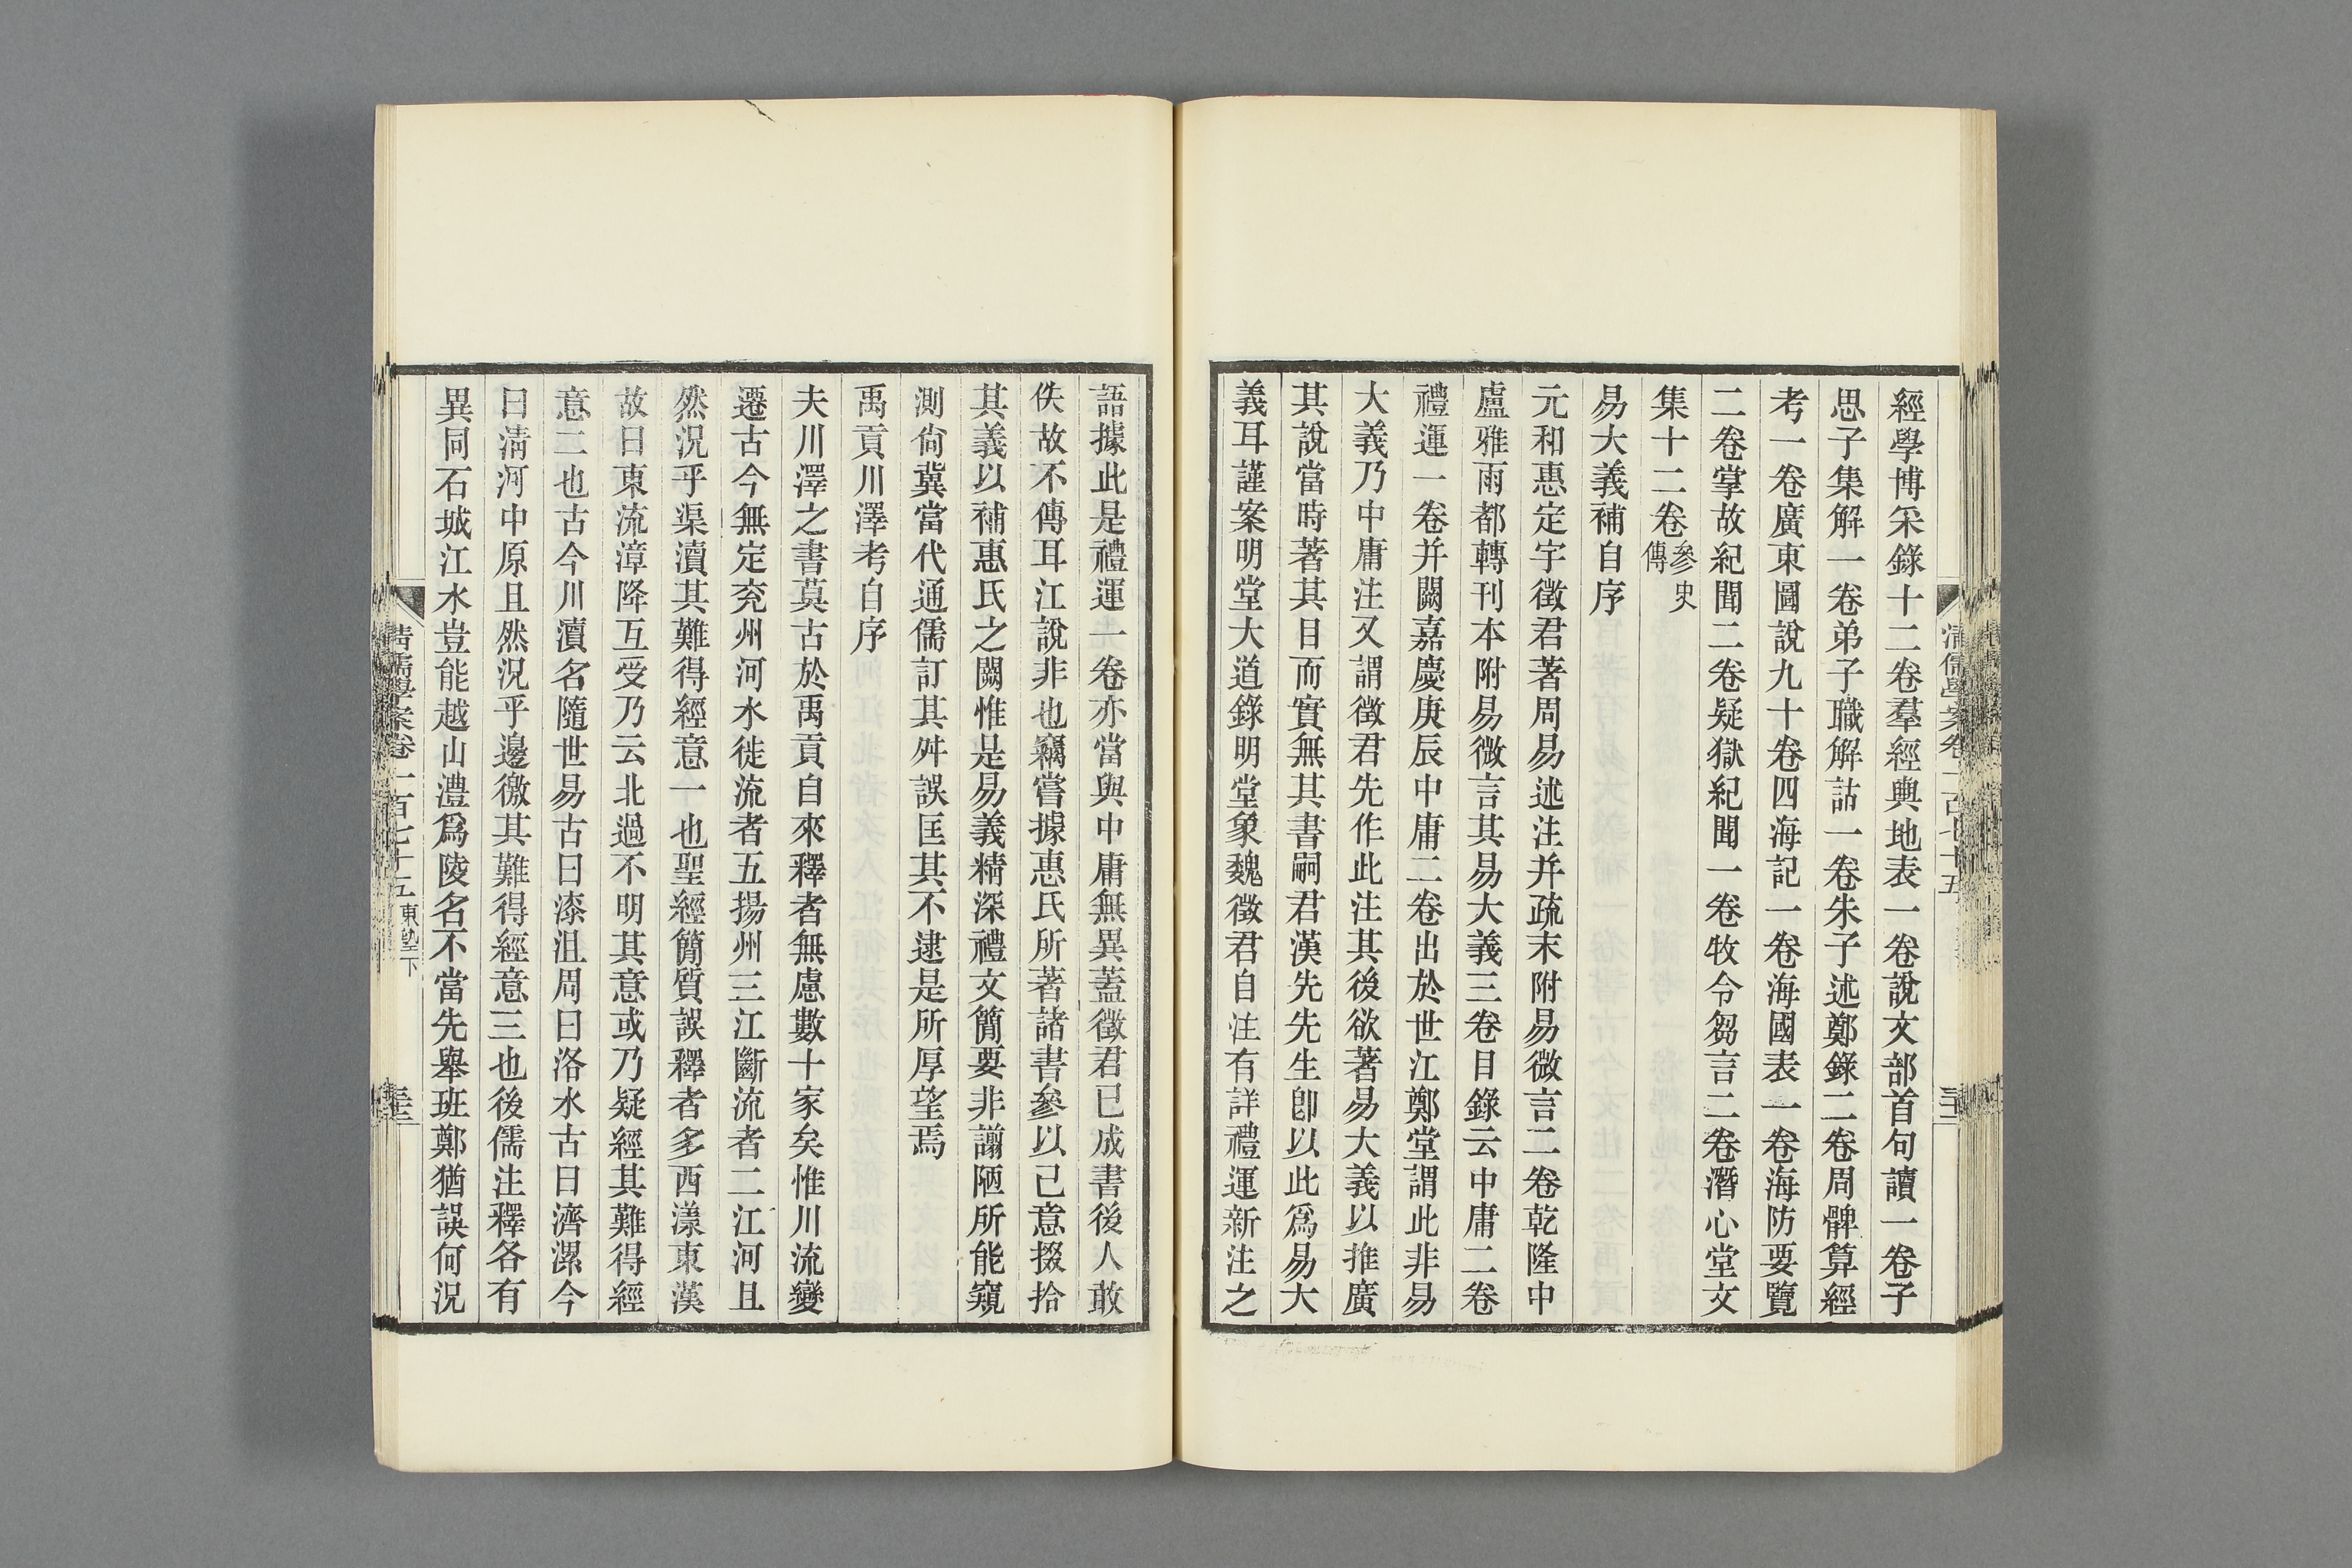 經學博采錄十二卷羣經輿地表一卷說文部首句讀一卷子
思子集解一卷弟子職解詁一卷朱子述鄭錄二卷周髀算經
考一卷廣東圖說九十卷四海記一卷海國表一卷海防要覽
二卷掌故紀聞二卷疑獄紀聞一卷牧令芻言二卷潛心堂文
集十二卷參史傳
易大義補自序
元和惠定宇徵君著周易述注并疏末附易微言二卷乾隆中
盧雅雨都轉刊本附易微言其易大義三卷目錄云中庸二卷
禮運一卷并闕嘉慶庚辰中庸二卷出於世江鄭堂謂此非易
大義乃中庸注又謂徵君先作此注其後欲著易大義以推廣
其說當時著其目而實無其書嗣君漢先先生卽以此爲易大
義耳謹案明堂大道錄明堂象魏徵君自注有詳禮運新注之
語據此是禮運一卷亦當與中庸無異蓋徵君已成書後人敢
佚故不傳耳江說非也竊嘗據惠氏所著諸書參以己意掇拾
其義以補惠氏之闕惟是易義精深禮文簡要非謭陋所能窺
測尙冀當代通儒訂其舛誤匡其不逮是所厚望焉
禹貢川澤考自序
夫川澤之書莫古於禹貢自來釋者無慮數十家矣惟川流變
遷古今無定兖州河水徙流者五揚州三江斷流者二江河且
然況乎渠瀆其難得經意一也聖經簡質誤釋者多西漾東漢
故曰東流漳降互受乃云北過不明其意或乃疑經其難得經
意二也古今川瀆名隨世易古曰漆沮周曰洛水古曰濟漯今
曰淸河中原且然況乎邊徼其難得經意三也後儒注釋各有
異同石城江水豈能越山澧爲陵名不當先舉班鄭猶誤何況
清儒學案卷一百七十五 東塾下